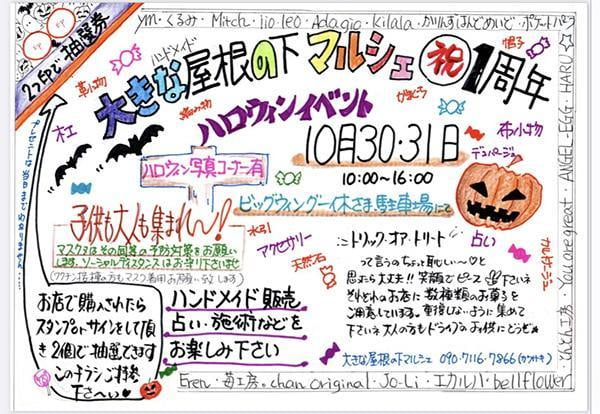 ym・くるみ・Mitch・jio leo・Adagio・Kilala・かりんずはんどめいど・ポケットパーク
2つ印で抽選券
プレゼントは当日までわかりません
ハンドメイド
大きな屋根の下マルシェ 祝 1周年
革小物
編み物
がまぐち
帽子
木工
布小物
ハロウィンイベント
10月30・31日
10:00〜16:00
デコパージュ
ハロウィン写真コーナー有
ビッグウィング一休さま、駐車場にて
子供も大人も集まれ〜!
マスクはその同等の予防対策をお願いします。ソーシャルディスタンスはお守り下さいませ
(ワクチン接種の方もマスク着用お願い致します)
水引
アクセサリー
天然石
占い
カルトナージュ
トリック・オア・トリート
って言うのちょっと恥しい〜♡と
思ったら大丈夫!!笑顔でピース下さいネ
それぞれのお店に数種類のお菓子を
ご用意しています。重複しないように集めて
下さいネ 大人の方もドライブのお供にどうぞ
お店で購入されたら
スタンプorサインをして頂
き2個で抽選できます
このチラシご持参
下さ〜い♡
ハンドメイド販売
占い・施術などを
お楽しみ下さい
大きな屋根の下マルシェ 090-7116-7866
Eren・苺工房。chan original・Jo-Li・エカルパ・bellflower
You are great・ANGEL-EGG・HARU